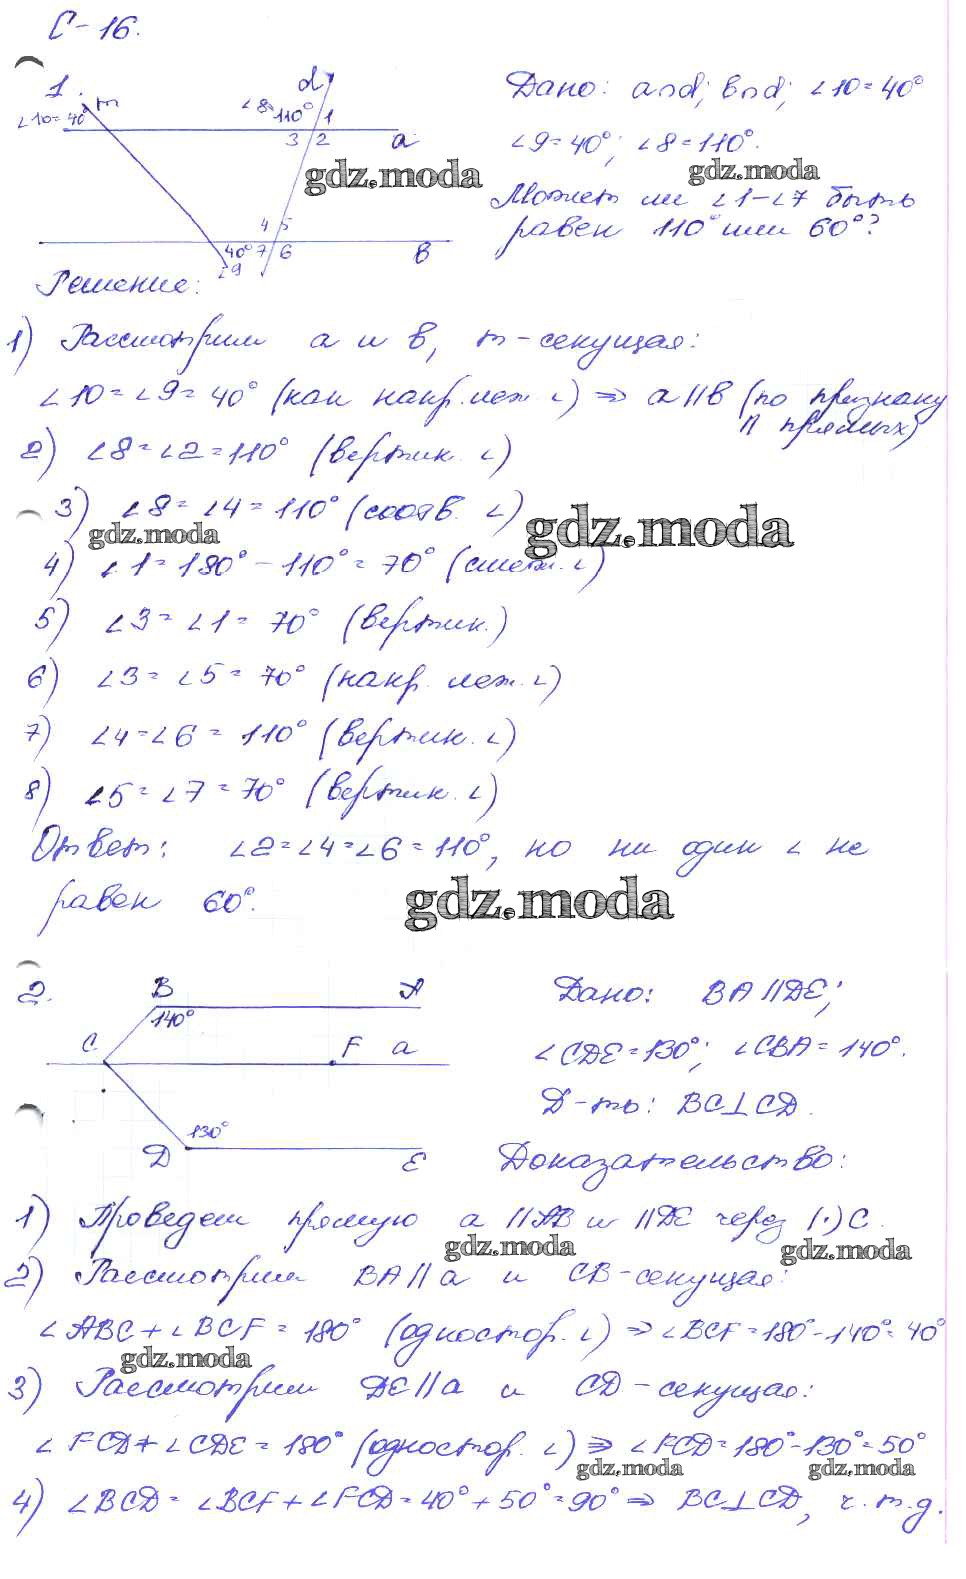 С-16.
1.
m
d
∠8=110° 1
∠10=40°
3 2 a
gdz.moda
4 5
40° 7 6 в
∠9
Дано: a∩d; в∩d; ∠10=40°
∠9=40°; ∠8=110°.
gdz.moda
Может ли ∠1-∠7 быть
равен 110° или 60°?
Решение:
1) Рассмотрим a и в, m-секущая:
∠10=∠9=40° (как накр. леж. ∠) ⇒ a||в (по признаку
|| прямых)
2) ∠8=∠2=110° (вертик. ∠)
3) ∠8=∠4=110° (соотв. ∠)
gdz.moda
gdz.moda
4) ∠1=180°-110°=70° (смеж. ∠)
5) ∠3=∠1=70° (вертик.)
6) ∠3=∠5=70° (накр. леж. ∠)
7) ∠4=∠6=110° (вертик. ∠)
8) ∠5=∠7=70° (вертик. ∠)
Ответ: ∠2=∠4=∠6=110°, но ни один ∠ не
равен 60°.
gdz.moda
2.
B A
140°
C F a
130°
D E
Дано: BA||DE;
∠CDE=130°; ∠CBA=140°.
Д-ть: BC⊥CD.
Доказательство:
1) Проведем прямую a ||AB и ||DE через (·) C.
gdz.moda
gdz.moda
2) Рассмотрим BA||a и CB-секущая:
∠ABC+∠BCF=180° (одностор. ∠) ⇒ ∠BCF=180°-140°=40°
gdz.moda
3) Рассмотрим DE||a и CD-секущая:
∠FCD+∠CDE=180° (одностор. ∠) ⇒ ∠FCD=180°-130°=50°
gdz.moda
gdz.moda
4) ∠BCD=∠BCF+∠FCD=40°+50°=90° ⇒ BC⊥CD, ч.т.д.